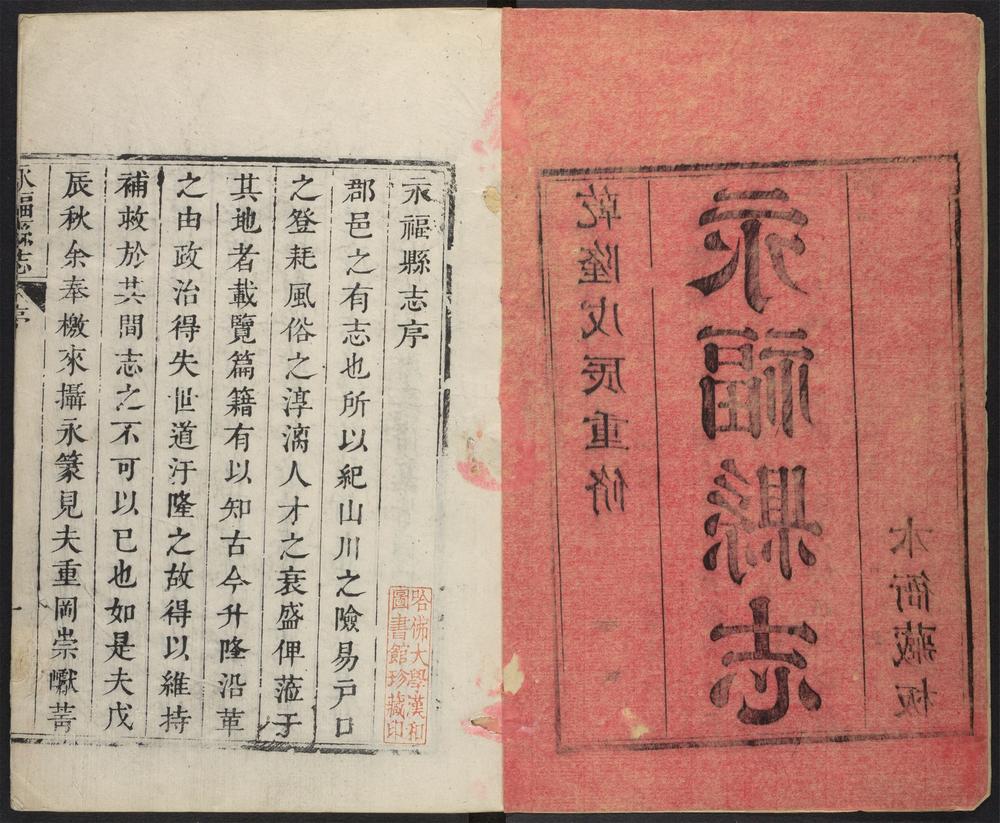 乾隆戊辰重修
永福縣志
本衙藏板
永福縣志序
郡邑之有志也所以紀山川之險易戸口
之登耗風俗之淳漓人才之衰盛俾蒞于
其地者載覽篇籍有以知古今升隆沿革
之由政治得失世道汙隆之故得以維持
補救於其間志之不可以已也如是夫戊
辰秋余奉檄來攝永篆見夫重岡崇巘菁
永福縣志
序
一
哈佛大學漢和
圖書館珍藏印